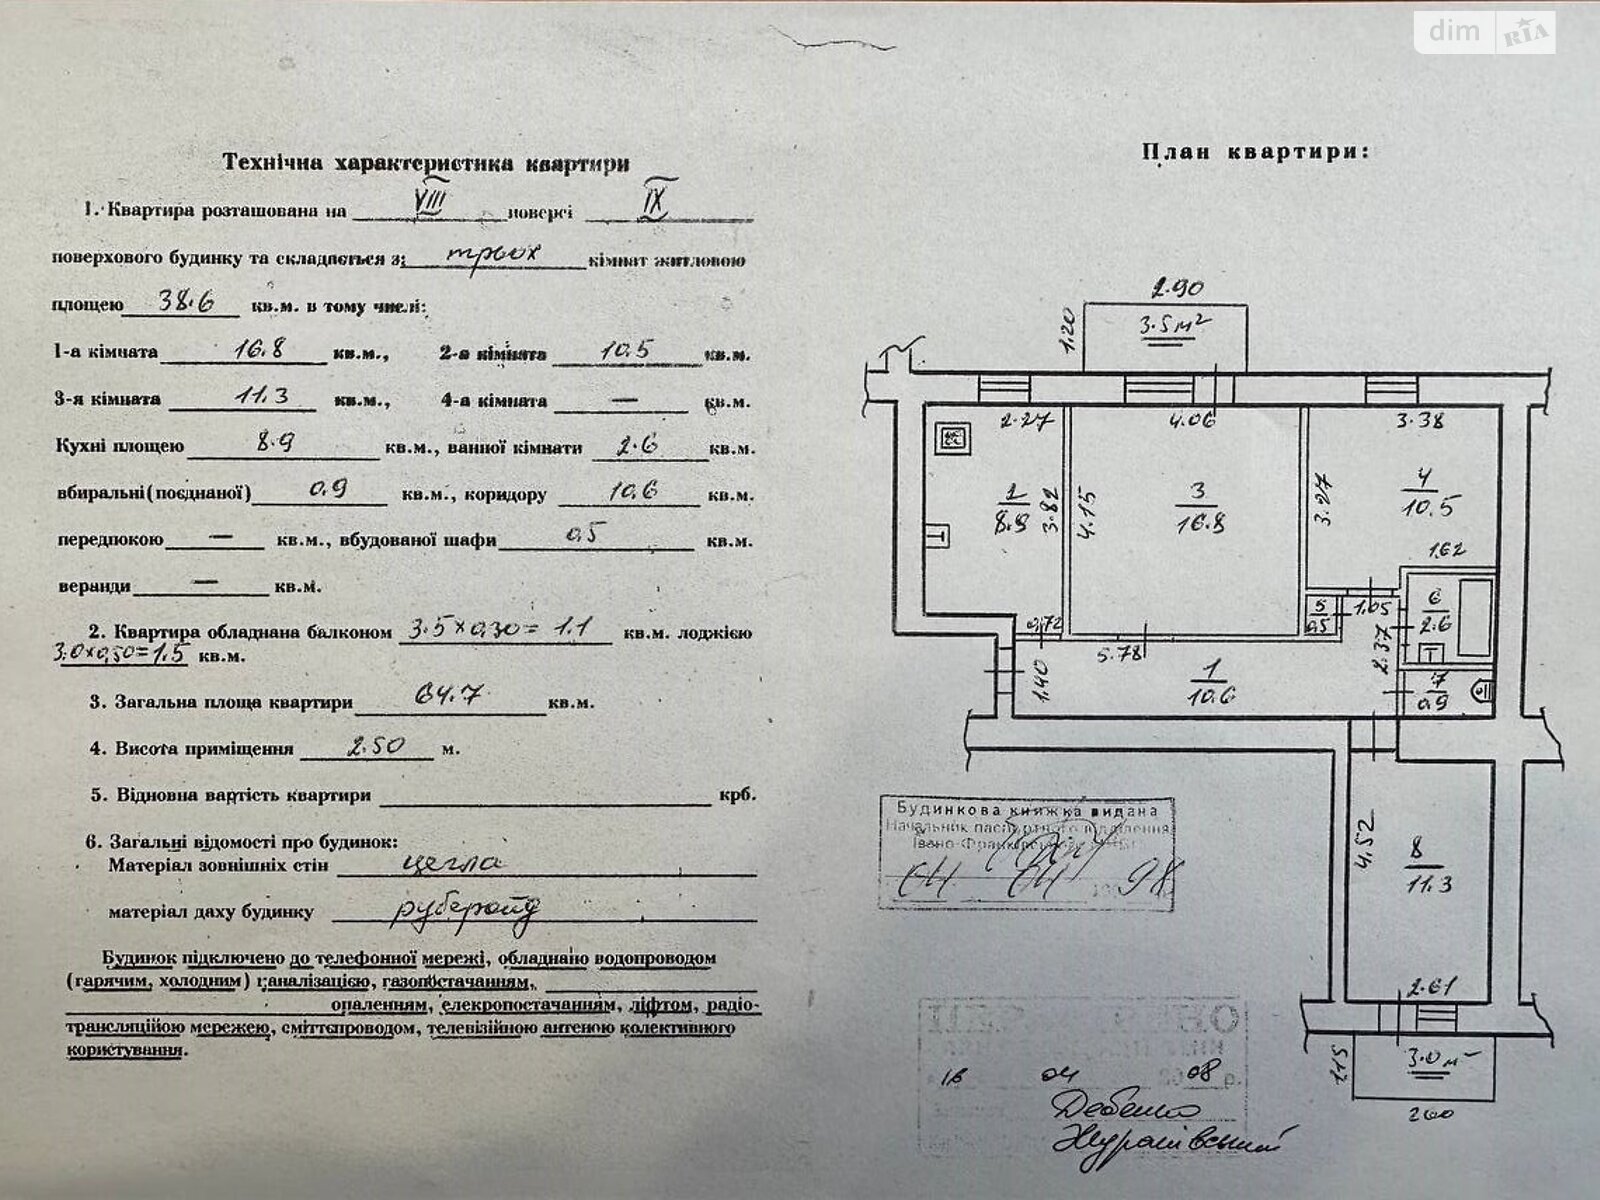 dim RIA
Технічна характеристика квартири
1. Квартира розташована на VIII поверсі IX
поверхового будинку та складається з: трьох кімнат житловою
площею 38.6 кв.м. в тому числі:
1-а кімната 16.8 кв.м., 2-а кімната 10.5 кв.м.
3-я кімната 11.3 кв.м., 4-а кімната — кв.м.
Кухні площею 8.9 кв.м., ванної кімнати 2.6 кв.м.
вбиральні (поєднаної) 0.9 кв.м., коридору 10.6 кв.м.
передпокою — кв.м., вбудованої шафи 0.5 кв.м.
веранди — кв.м.
2. Квартира обладнана балконом 3.5×0.30=1.1 кв.м. лоджією
3.0×0.50=1.5 кв.м.
3. Загальна площа квартири 64.7 кв.м.
4. Висота приміщення 2.50 м.
5. Відновна вартість квартири крб.
6. Загальні відомості про будинок:
Матеріал зовнішніх стін цегла
матеріал даху будинку рубероїд
Будинок підключено до телефонної мережі, обладнано водопроводом
(гарячим, холодним) каналізацією, газопостачанням,
опаленням, елекропостачанням, ліфтом, радіо-
трансляційою мережею, сміттєпроводом, телевізійною антеною колективного
користування.
План квартири:
2.90
1.20 3.5 м²
2.27 4.06 3.38
2 8.9 3.82 4.15 3 16.8 3.27 4 10.5
1.62
5 0.5 1.05 6 2.6
0.72 5.78 2.37
1.40 1 10.6 7 0.9
Будинкова книжка видана
Начальник паспортного відділення
04 04 98
4.52 8 11.3
2.61
1.15 3.0 м²
260
16 04 08